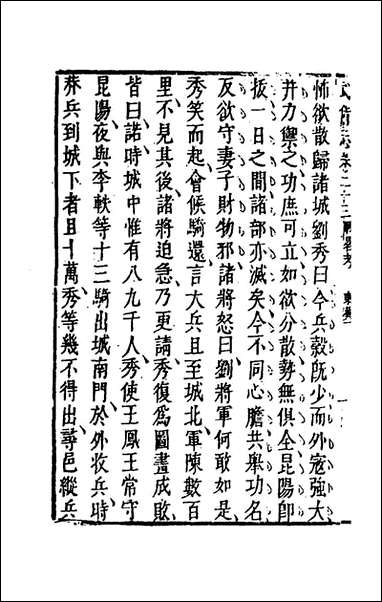 武備志卷二十三 戰畧考 東漢一
怖欲散歸諸城劉秀曰今兵穀旣少而外寇強大
并力禦之功庶可立如欲分散勢無俱全昆陽卽
拔一日之間諸部亦滅矣今不同心膽共舉功名
反欲守妻子財物邪諸將怒曰劉將軍何敢如是
秀笑而起會候騎還言大兵且至城北軍陳數百
里不見其後諸將迫急乃更請秀復爲圖畫成敗
皆曰諾時城中惟有八九千人秀使王鳳王常守
昆陽夜與李軼等十三騎出城南門於外收兵時
莽兵到城下者且十萬秀等幾不得出尋邑縱兵